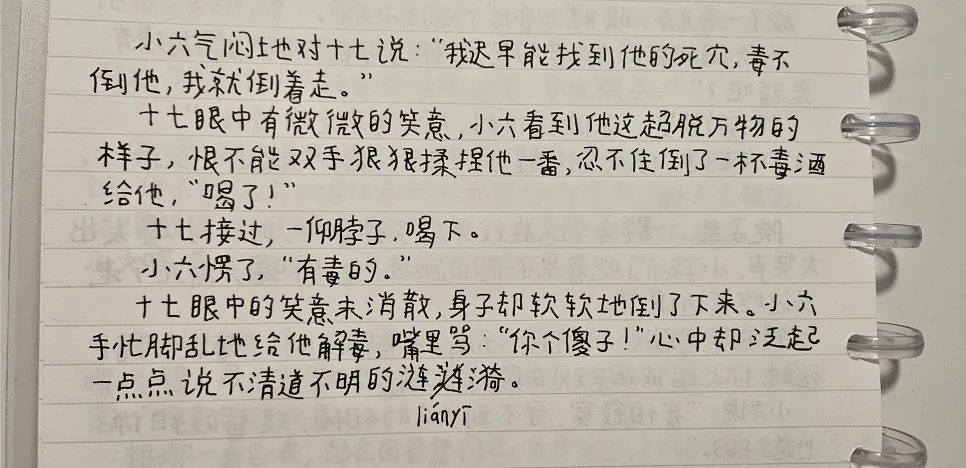 小六气闷地对十七说：“我迟早能找到他的死穴，毒不
倒他，我就倒着走。”
十七眼中有微微的笑意，小六看到他这超脱万物的
样子，恨不能双手狠狠揉捏他一番，忍不住倒了一杯毒酒
给他，“喝了！”
十七接过，一仰脖子，喝下。
小六愣了，“有毒的。”
十七眼中的笑意未消散，身子却软软地倒了下来。小六
手忙脚乱地给他解毒，嘴里骂：“你个傻子！”心中却泛起
一点点说不清道不明的涟漪。
liányī